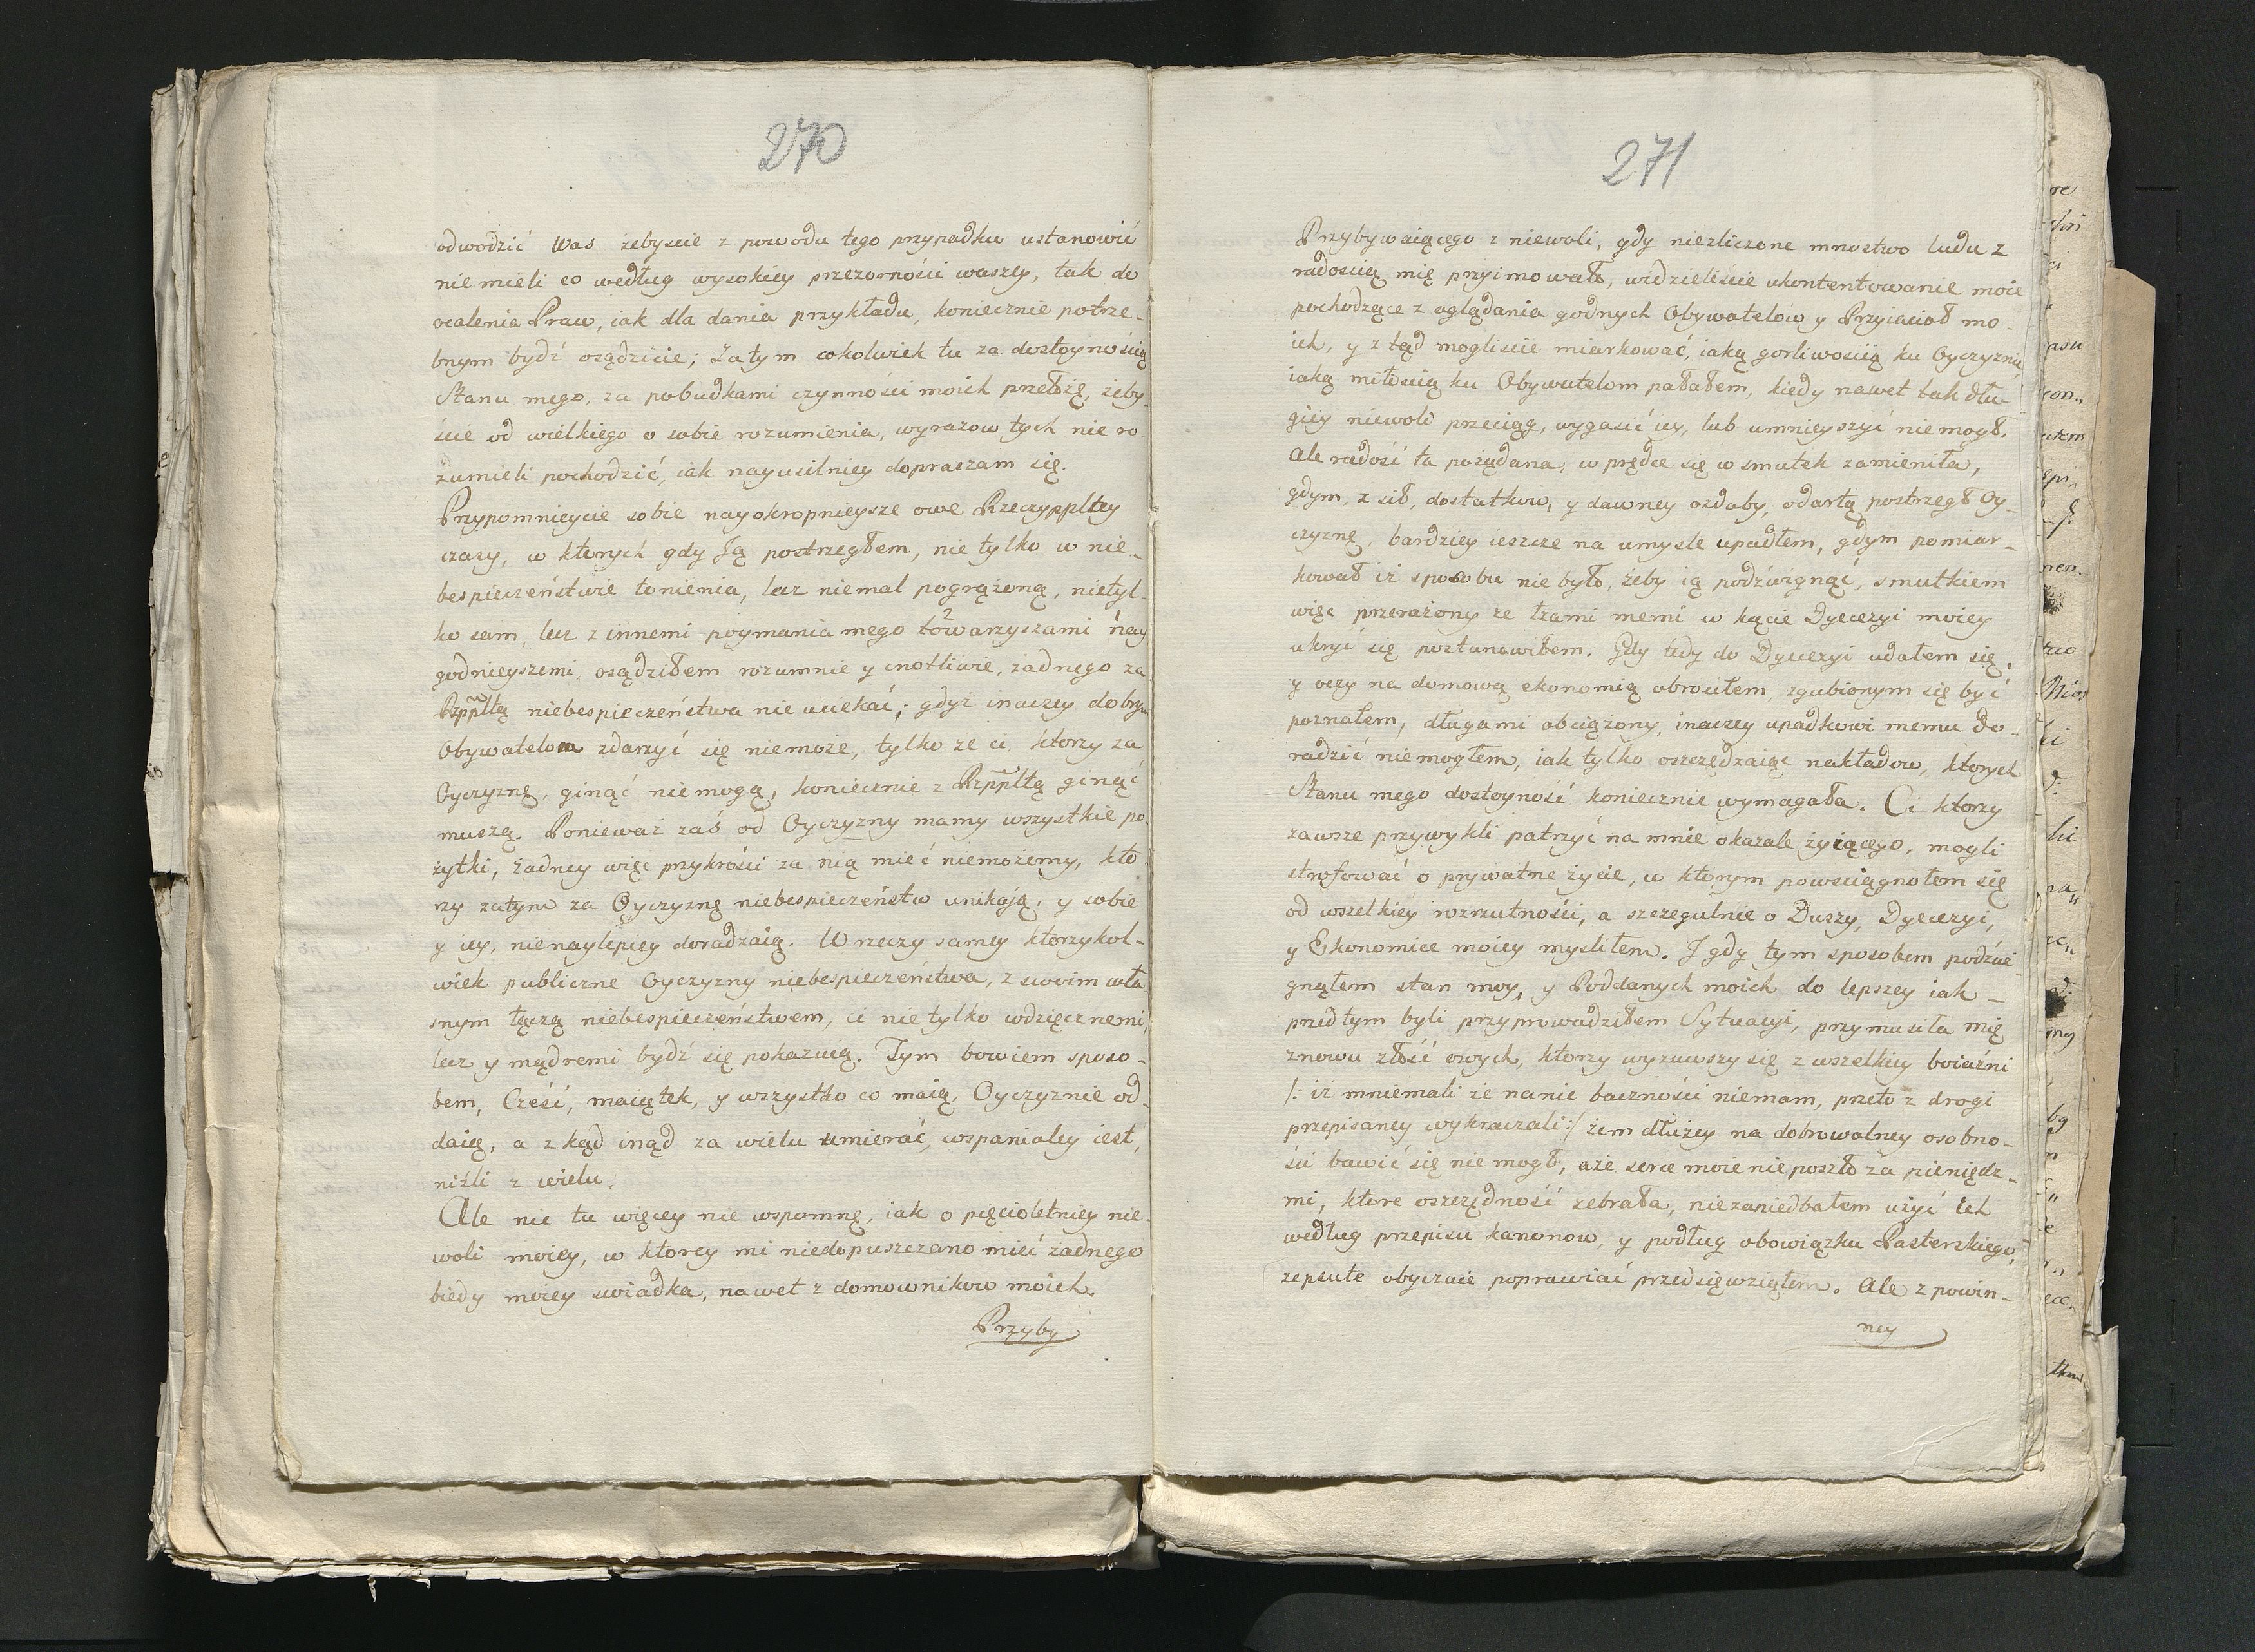 270
odwodzić was żebyście z powodu tego przypadku ustanowić
nie mieli co według wysokiey przezorności waszey, tak do
ocalenia Praw, iak dla dania przykładu, koniecznie potrze-
bnym bydź osądzicie; Zatym cokolwiek tu za dostoynością
Stanu mego, za pobudkami czynności moich przełożę, żeby-
ście od wielkiego o sobie rozumienia, wyrazow tych nie ro
zumieli pochodzić, iak nayusilniey dopraszam się.
Przypomnieycie sobie nayokropnieysze owe Rzeczyppltey
czasy, w ktorych gdy Ją postrzegłem, nie tylko w nie-
bespieczeństwie tonienia, lecz niemal pogrążoną, nietyl-
ko sam, lecz z innemi poymania mego towarzyszami nay
godnieyszemi, osądziłem rozumnie y cnotliwie, żadnego za
Rzppltą niebespieczeństwa nie uciekać; gdyż inaczey dobrym
Obywatelom zdarzyć się niemoże, tylko że ci, ktorzy za
Oyczyznę, ginąć niemogą, koniecznie z Rzppltą ginąć
muszą. Ponieważ zaś od Oyczyzny mamy wszystkie po-
żytki, żadney więc przykrości za nią mieć niemożemy, kto
rzy zatym za Oyczyznę niebespieczeństw unikają, y sobie
y iey, nienaylepiey doradzaią. W rzeczy samey ktorzykol-
wiek publiczne Oyczyzny niebespieczeństwa, z swoim wła
snym łączą niebespieczeństwem, ci nie tylko wdzięcznemi,
lecz y mądremi bydź się pokazuią. Tym bowiem sposo-
bem, Cześć, maiątek, y wszystko co maią, Oyczyznie od-
daią, a z kąd inąd za wielu umierać, wspanialey iest,
niźli z wielu.
Ale nie tu więcey nie wspomnę, iak o pięcioletniey nie-
woli moiey, w ktorey mi niedopuszczano mieć żadnego
biedy moiey swiadka, nawet z domownikow moich.
Przyby
271
Przybywaiącego z niewoli, gdy niezliczone mnostwo ludu z
radością mię przyimowało, widzieliście ukontentowanie moie
pochodzące z oglądania godnych Obywatelow y Przyiacioł mo-
ich, y z tąd mogliście miarkować, iaką gorliwością ku Oyczyznie
iaką miłością ku Obywatelom pałałem, kiedy nawet tak dłu-
giey niewoli przeciąg, wygasić iey, lub umnieyszyć niemogł.
Ale radość ta pożądana, w prędce się w smutek zamieniła,
gdym z sił, dostatkow, y dawney ozdoby, odartą postrzegł Oy-
czyznę, bardziey ieszcze na umyśle upadłem, gdym pomiar-
kował iż sposobu nie było, żeby ią podźwignąć, smutkiem
więc przerażony ze łzami memi w kącie Dyecezyi moiey
ukryć się postanowiłem. Gdy tedy do Dyecezyi udałem się,
y oczy na domową ekonomią obrociłem, zgubionym się być
poznałem, długami obciążony, inaczey upadkowi memu do-
radzić niemogłem, iak tylko oszczędzaiąc nakładow, ktorych
Stanu mego dostoyność koniecznie wymagała. Ci ktorzy
zawsze przywykli patrzyć na mnie okazale żyiącego, mogli
strofować o prywatne życie, w ktorym powsciągnołem się
od wszelkiey rozrzutności, a szczegulnie o Duszy, Dyecezyi,
y Ekonomice moiey myslilem. I gdy tym sposobem podźwi-
gnąłem stan moy, y Poddanych moich do lepszey iak –
przedtym byli przyprowadziłem Sytuacyi, przymusiła mię
znowu złość owych, ktorzy wyzuwszy się z wszelkiey boiaźni
/: iż mniemali że nanie baczności niemam, przeto z drogi
przepisaney wykraczali:/ żem dłużey na dobrowolney osobno-
ści bawić się nie mogł, aże serce moie nieposzło za pieniędz-
mi, ktore oszczędność zebrała, niezaniedbałem użyć ich
według przepisu kanonow, y podług obowiązku Pasterskiego,
zepsute obyczaie poprawiać przedsięwziąłem. Ale z powin-
ney